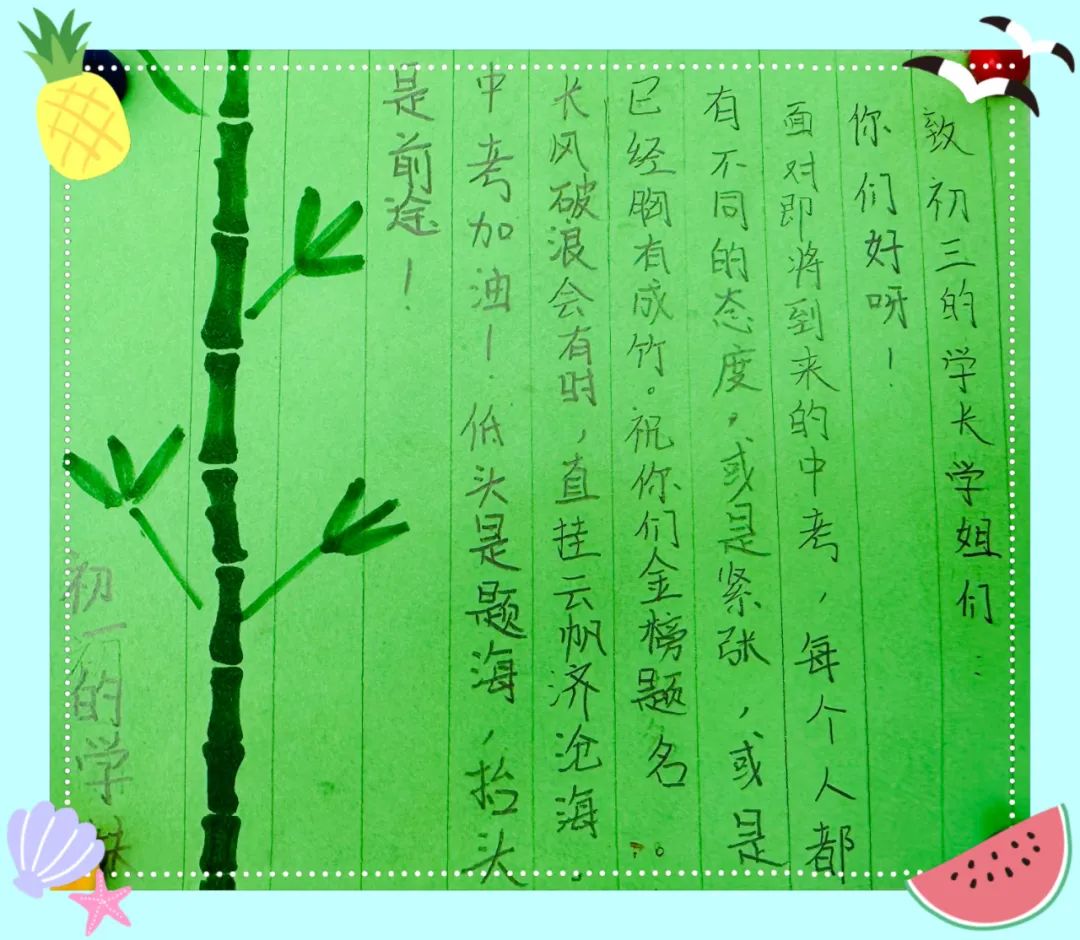 致初三的学长学姐们:
你们好呀!
面对即将到来的中考,每个人都
有不同的态度,或是紧张,或是
已经胸有成竹。祝你们金榜题名。
长风破浪会有时,直挂云帆济沧海.
中考加油!低头是题海,抬头
是前途!
初一的学妹